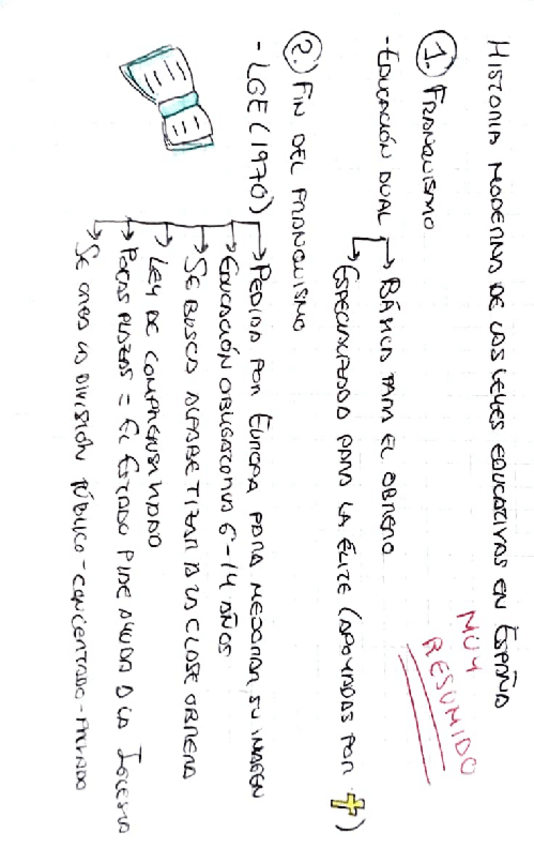 HISTORIA MODERNA DE LAS LEYES EDUCATIVAS EN ESPAÑA
MUY
RESUMIDO
1. FRANQUISMO
- EDUCACIÓN DUAL → BÁSICA PARA EL OBRERO
→ ESPECIALIZADA PARA LA ÉLITE (APOYADAS POR ✝)
2. FIN DEL FRANQUISMO
- LGE (1970) → PEDIDA POR EUROPA PARA MEJORAR SU IMAGEN
→ EDUCACIÓN OBLIGATORIA 6-14 AÑOS
→ SE BUSCA ALFABETIZAR A LA CLASE OBRERA
→ LEY DE COMPRENSIVIDAD
→ POCAS PLAZAS = EL ESTADO PIDE AYUDA A LA IGLESIA
→ SE CREA LA DIVISIÓN PÚBLICO - CONCERTADO - PRIVADO